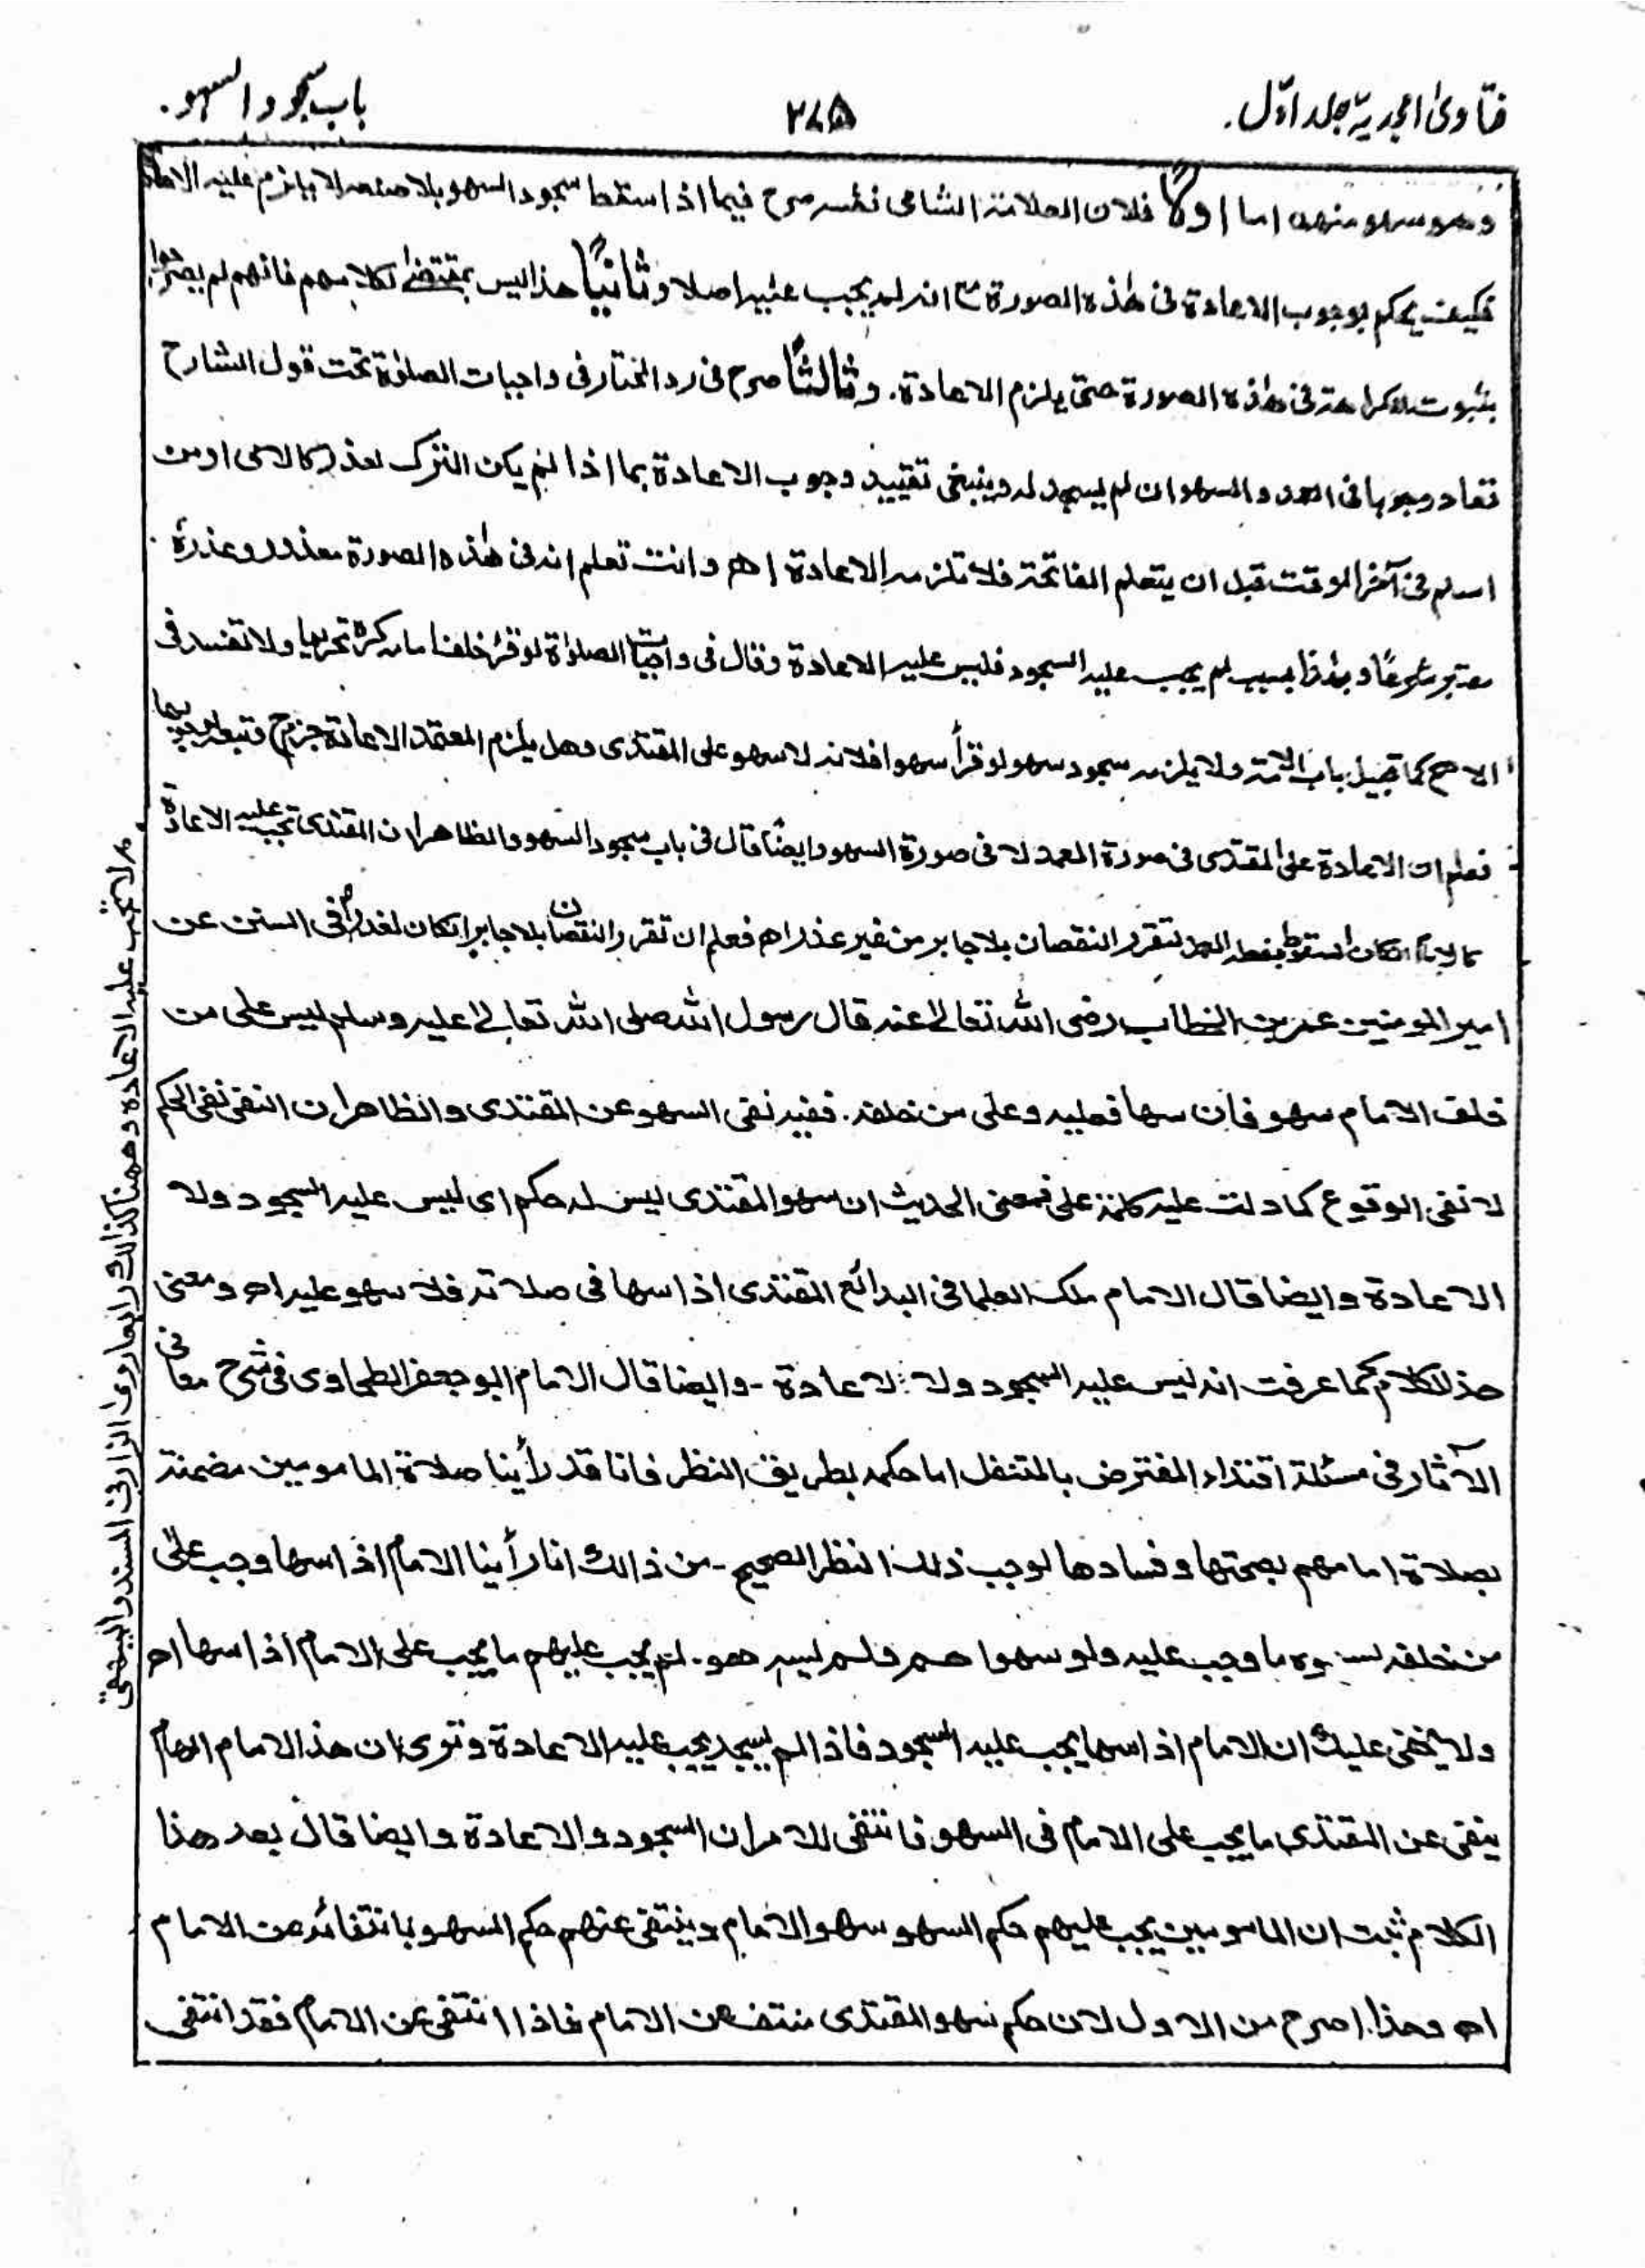 فتاویٰ امجدیہ جلد اوّل.
۲۷۵
باب سجود السهو.
وهو سهو منهم اما اولاً فلان العلامة الشامى نفسه صرح فيما اذا سقط سجود السهو بلا صنعه لا يلزم عليه الاعادة
فكيف يحكم بوجوب الاعادة فى هٰذه الصورة مع انه لم يجب عليه اصلا وثانيًا هذا ليس بمقتضٰى كلامهم فانهم لم يصرحوا
بثبوت الكراهة فى هٰذه الصورة حتى يلزم الاعادة. وثالثًا صرح فى رد المختار فى واجبات الصلوٰة تحت قول الشارح
تعاد وجوبا فى العمد والسهو ان لم يسجد له وينبغى تقييد وجوب الاعادة بما اذا لم يكن الترك لعذر كالامى او من
اسلم فى آخر الوقت قبل ان يتعلم الفاتحة فلا تلزمه الاعادة اھ وانت تعلم انه فى هٰذه الصورة معذور وعذره
معتبر شرعًا وبهٰذا بسبب لم يجب عليه السجود فليس عليه الاعادة وقال فى واجبات الصلوٰة لو قرأ خلف امامه كره تحريما ولا تفسد فى
الاصح كما قبيل باب الامة ولا يلزمه سجود سهو لو قرأ سهوا فلانه لا سهو على المقتدى وهل يلزم المتعمد الاعادة جزم ح وتبعه ط بوجوبها
فعلم ان الاعادة على المقتدى فى صورة العمد لا فى صورة السهو وايضًا قال فى باب سجود السهو والظاهر ان المقتدى تجب عليه الاعادة
كالامام ان كان السقوط بفعله العمد لتقرر النقصان بلا جابر من غير عذر اھ فعلم ان تقرر النقصان بلا جابر ان كان لعذر م فى السنن عن
امير المومنين عمر بن الخطاب رضى اللّٰه تعالےٰ عنه قال رسول اللّٰه صلى اللّٰه تعالےٰ عليه وسلم ليس على من
خلف الامام سهو فان سها فعليه وعلى من خلفه. ففيه نفى السهو عن المقتدى والظاهر ان النفى نفى الحكم
لا نفى الوقوع كما دلت عليه كلمة على فمعنى الحديث ان سهو المقتدى ليس له حكم اى ليس عليه السجود ولا
الاعادة وايضا قال الامام ملك العلما فى البدائع المقتدى اذا سها فى صلاته فلا سهو عليه اھ ومعنى
هذا الكلام كما عرفت انه ليس عليه السجود ولا الاعادة - وايضا قال الامام ابو جعفر الطحاوى فى شرح معانى
الآثار فى مسئلة اقتداء المفترض بالمتنفل اما حكمه بطريق النظر فانا قد رأينا صلاة المامومين مضمنة
بصلاة امامهم بصحتها وفسادها لوجب ذلك النظر الصحيح - من ذالك انا رأينا الامام اذا سها وجب علىٰ
من خلفه لسهوه ما وجب عليه ولو سهوا هم ولم يسه هو. لم يجب عليهم ما يجب على الامام اذا سها اھ
ولا يخفى عليك ان الامام اذا سها يجب عليه السجود فاذا لم يسجد يجب عليه الاعادة وترى ان هذا الامام الهمام
ينفى عن المقتدى ما يجب على الامام فى السهو فانتفى الامران السجود والاعادة وايضا قال بعد هذا
الكلام ثبت ان المامومين يجب عليهم حكم السهو سهو الامام وينتفى عنهم حكم السهو بانتفائه عن الامام
اھ وهذا اصرح من الاول لان حكم سهو المقتدى منتف عن الامام فاذا انتفى عن الامام فقد انتفى
م لا تجب عليه الاعاده وههنا كذالك رابعا روى البزار فى المسند والبيهقى